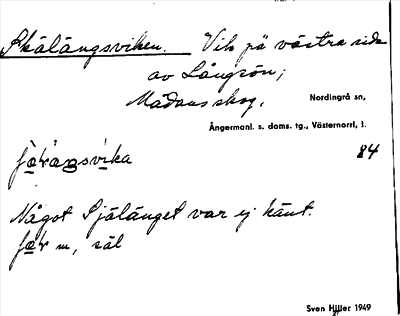 Själängsviken. Vik på västra sidan
av Långrön;
Mädans skog. Nordingrå sn,
Ångermanl. s. doms. tg., Västernorrl. l.
84
Något Själänget var ej känt.
m, säl
Sven Hiller 1949